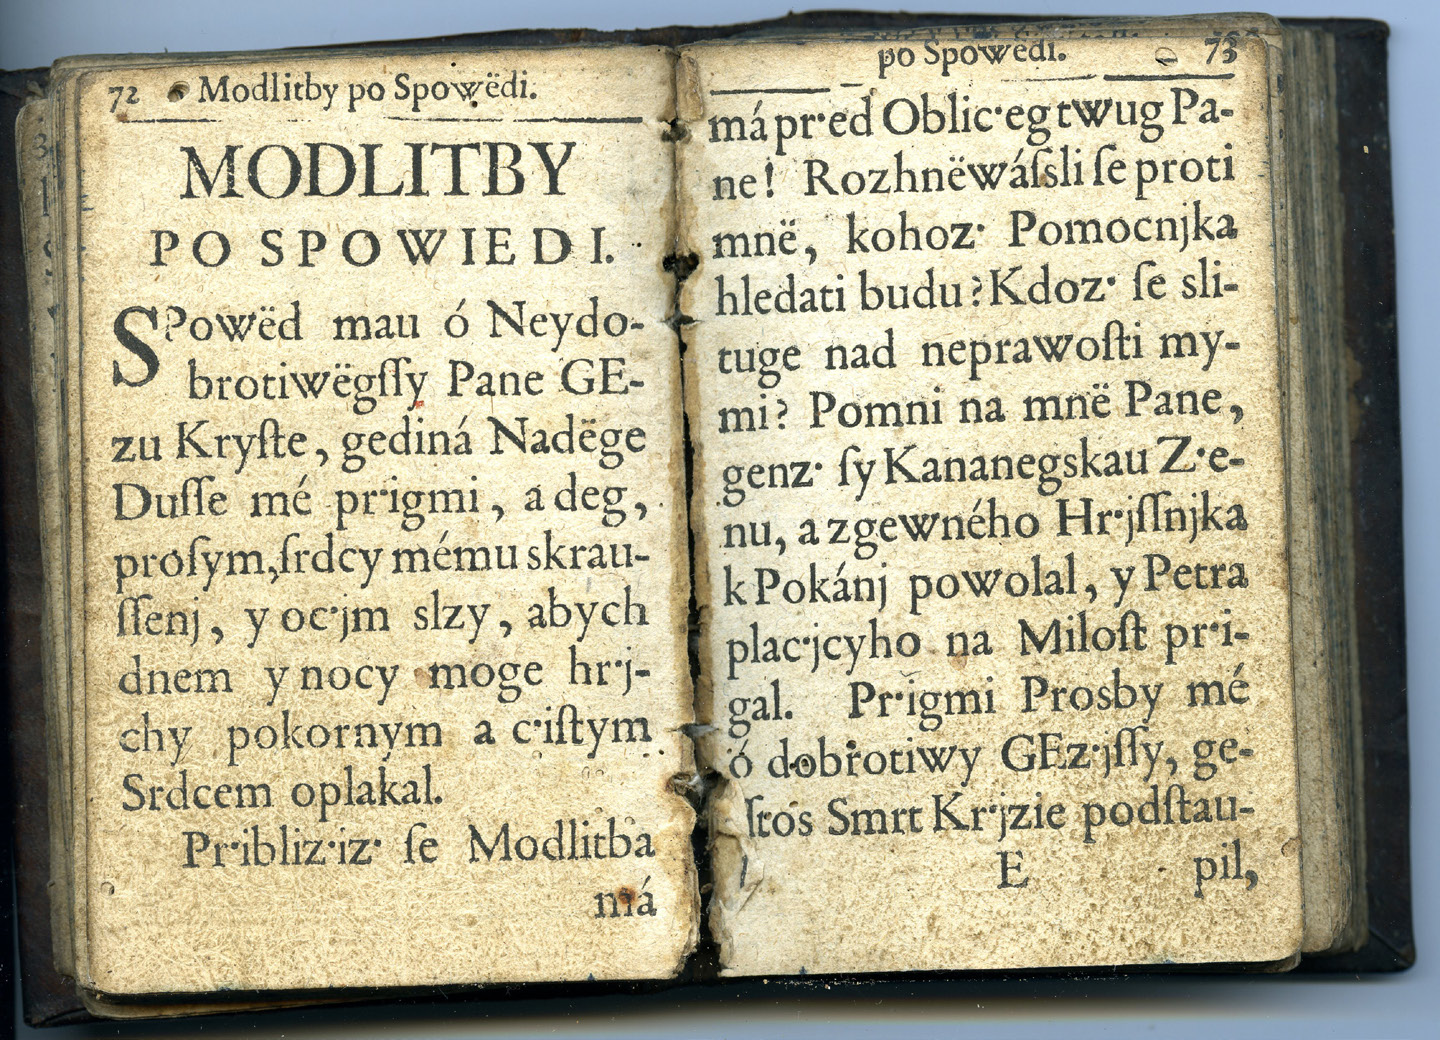 72 Modlitby po Spowëdi.
MODLITBY
PO SPOWIEDI.
SPowëd mau ó Neydo-
brotiwëgſſy Pane GE-
zu Kryſte, gediná Nadëge
Duſſe mé pr·igmi, a deg,
proſym, ſrdcy mému skrau-
ſſenj, y oc·jm slzy, abych
dnem y nocy moge hr·j-
chy pokornym a c·iſtym
Srdcem oplakal.
Pr·ibliz·iz· ſe Modlitba
má
po Spowëdi. 73
má pr·ed Oblic·eg twug Pa-
ne! Rozhnëwáſsli ſe proti
mnë, kohoz· Pomocnjka
hledati budu? Kdoz· ſe sli-
tuge nad neprawoſti my-
mi? Pomni na mnë Pane,
genz· ſy Kananegskau Z·e-
nu, a zgewného Hr·jſſnjka
k Pokánj powolal, y Petra
plac·jcyho na Miloſt pr·i-
gal. Pr·igmi Prosby mé
ó dobrotiwy GEz·jſſy, ge-
ſtos Smrt Kr·jzie podſtau-
E pil,